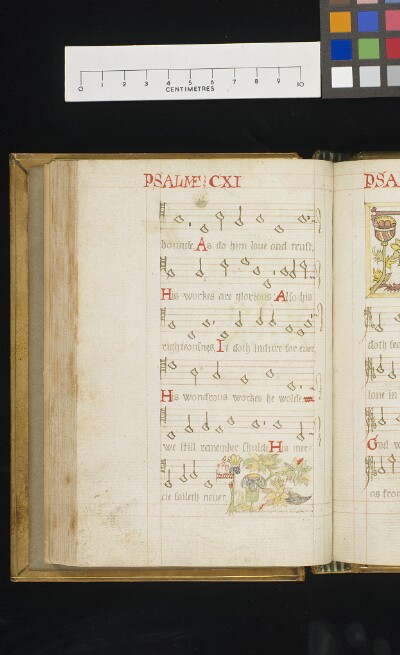 0 1 2 3 4 5 6 7 8 9 10
CENTIMETRES
PSALME CXI
hounde, As do him loue and trust,
His workes are glorious: Also his
righteousnes, It doth indure for euer.
His wondrous workes he wolde
we still remember shulde His mer
cie faileth neuer.
PSA
doth
loue in
God
as